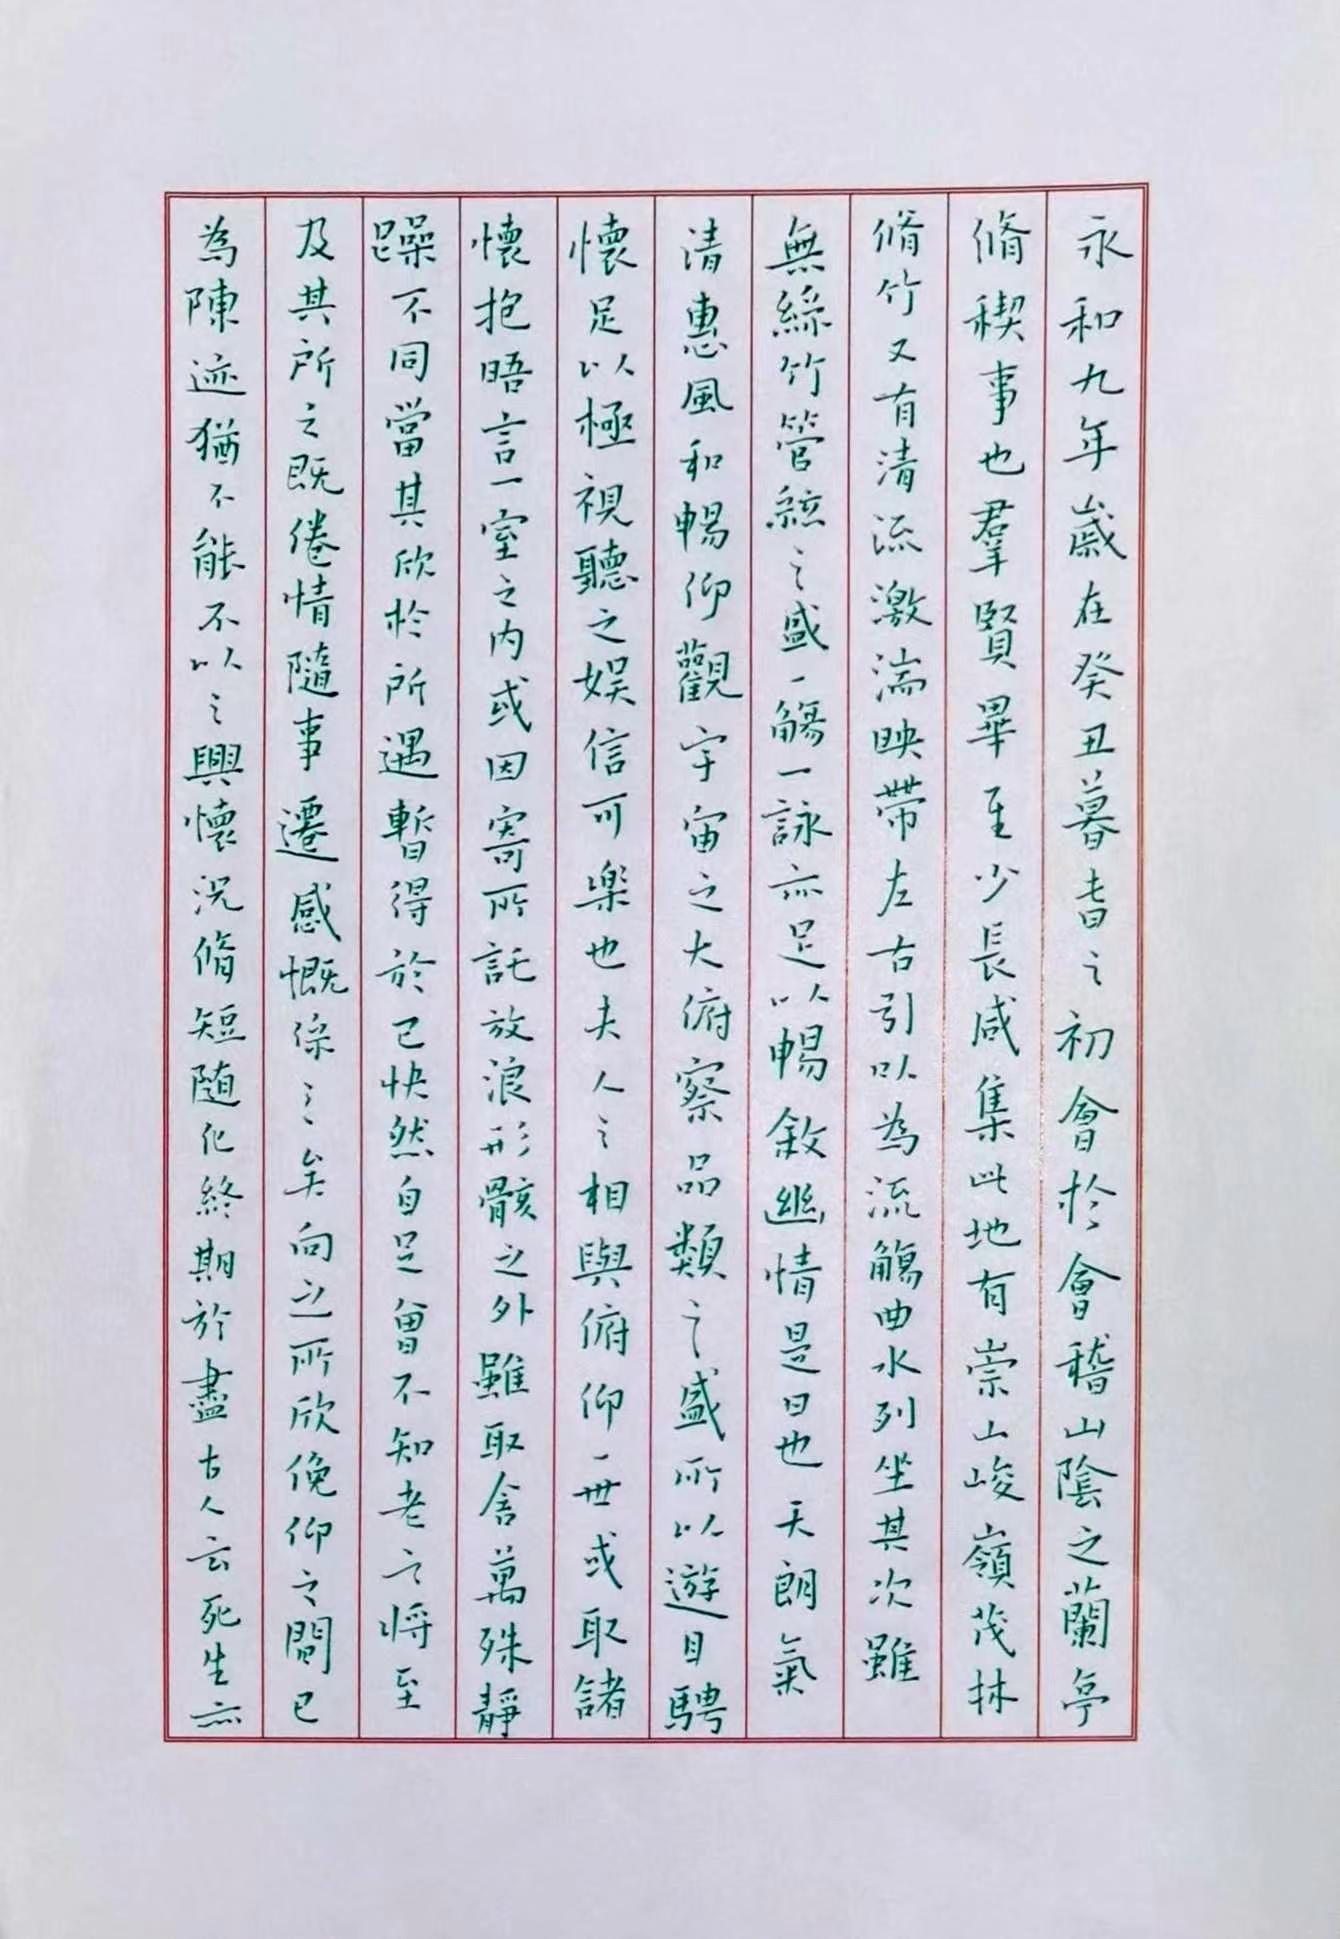 永和九年歲在癸丑暮春之初會於會稽山陰之蘭亭
脩稧事也羣賢畢至少長咸集此地有崇山峻嶺茂林
脩竹又有清流激湍映帶左右引以為流觴曲水列坐其次雖
無絲竹管絃之盛一觴一詠亦足以暢敘幽情是日也天朗氣
清惠風和暢仰觀宇宙之大俯察品類之盛所以遊目騁
懷足以極視聽之娛信可樂也夫人之相與俯仰一世或取諸
懷抱晤言一室之內或因寄所託放浪形骸之外雖取舍萬殊靜
躁不同當其欣於所遇暫得於己快然自足曾不知老之將至
及其所之既倦情隨事遷感慨係之矣向之所欣俛仰之間已
為陳迹猶不能不以之興懷況脩短隨化終期於盡古人云死生亦